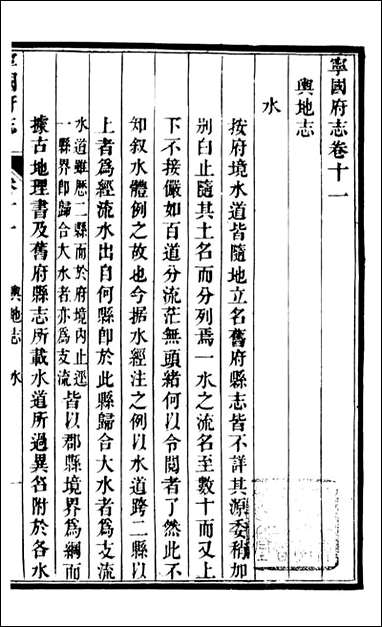 寧國府志卷十一
輿地志
水
按府境水道皆隨地立名舊府縣志皆不詳其源委稍加
剖白止隨其土名而分列焉一水之流名至數十而又上
下不接儼如百道分流茫無頭緒何以令閱者了然此不
知叙水體例之故也今据水經注之例以水道跨二縣以
上者爲經流水出自何縣卽於此縣歸合大水者爲支流
水道雖歷二縣而於府境內止逕
一縣界卽歸合大水者亦爲支流
皆以郡縣境界爲綱而
據古地理書及舊府縣志所載水道所過異名附於各水
寧國府志
卷十一
輿地志
水
一